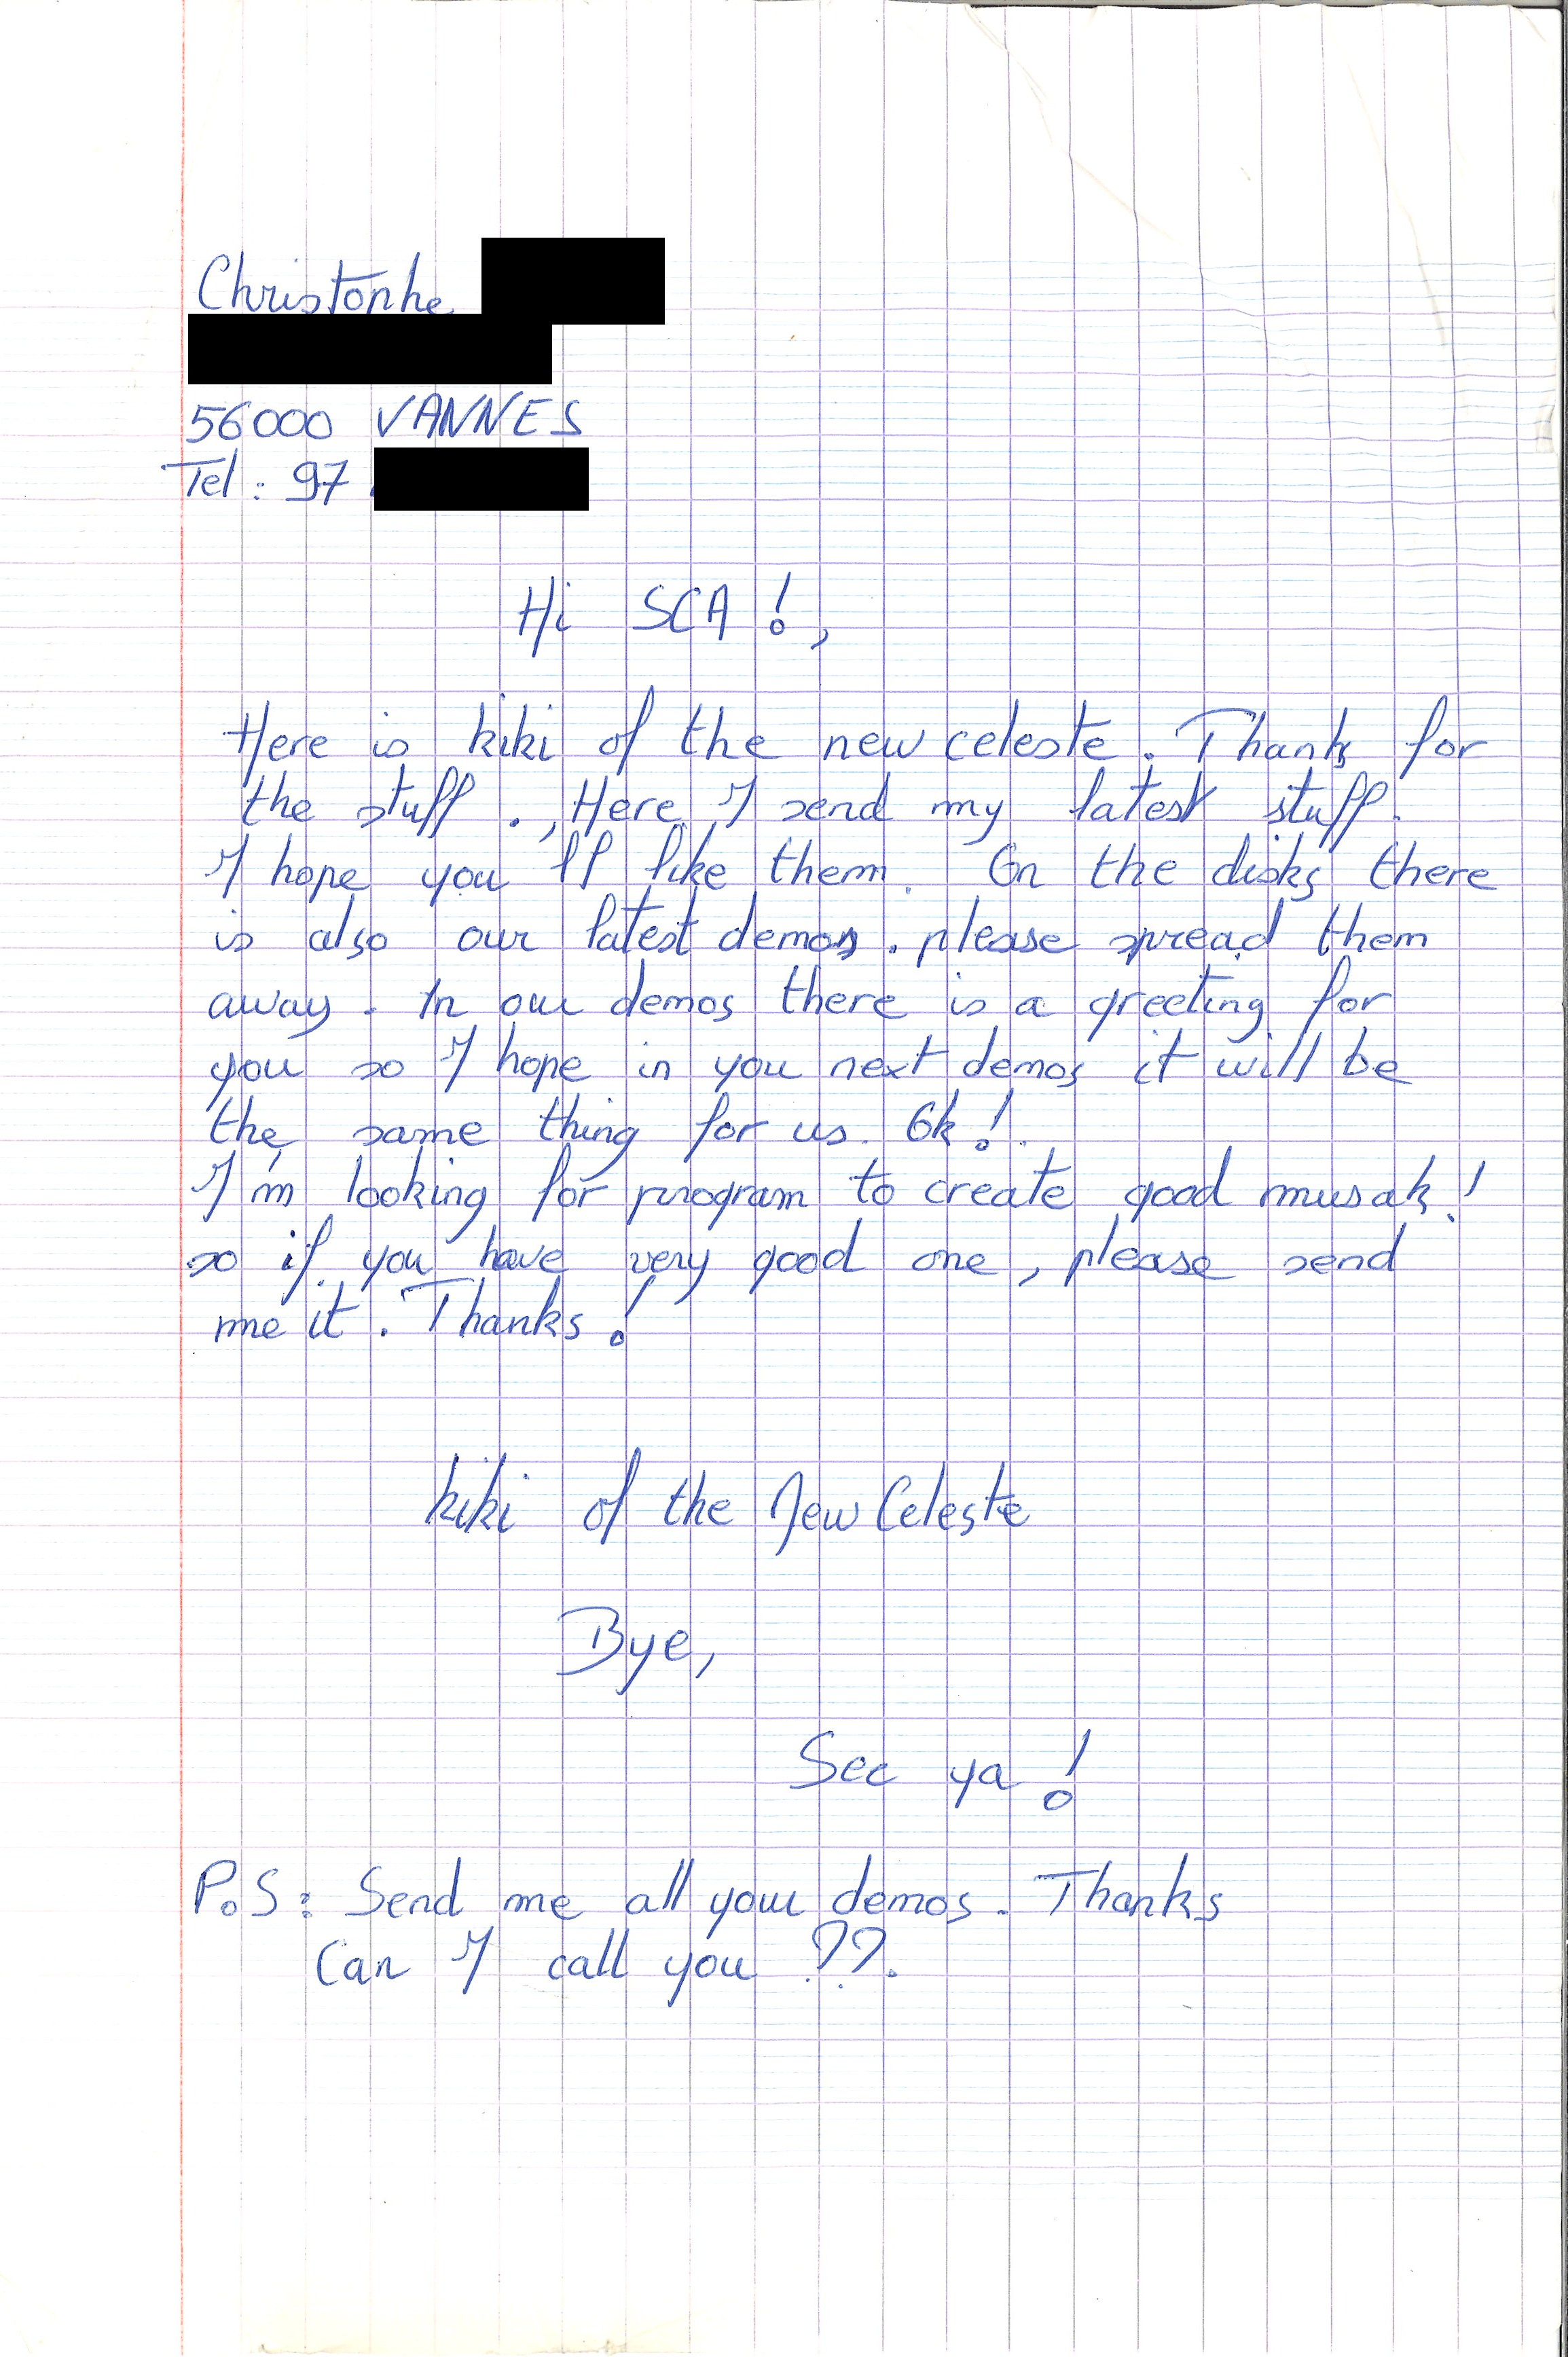 Christophe
56000 VANNES
Tel : 97
Hi SCA !,
Here is kiki of the new celeste. Thanks for
the stuff . , Here I send my latest stuff.
I hope you'll like them. On the disks there
is also our latest demos. please spread them
away. In our demos there is a greeting for
you so I hope in you next demos it will be
the same thing for us. Ok !.
I'm looking for program to create good musak !
so if you have very good one, please send
me it. Thanks !
kiki of the New Celeste
Bye,
See ya !
P.S : Send me all your demos. Thanks
Can I call you ??.